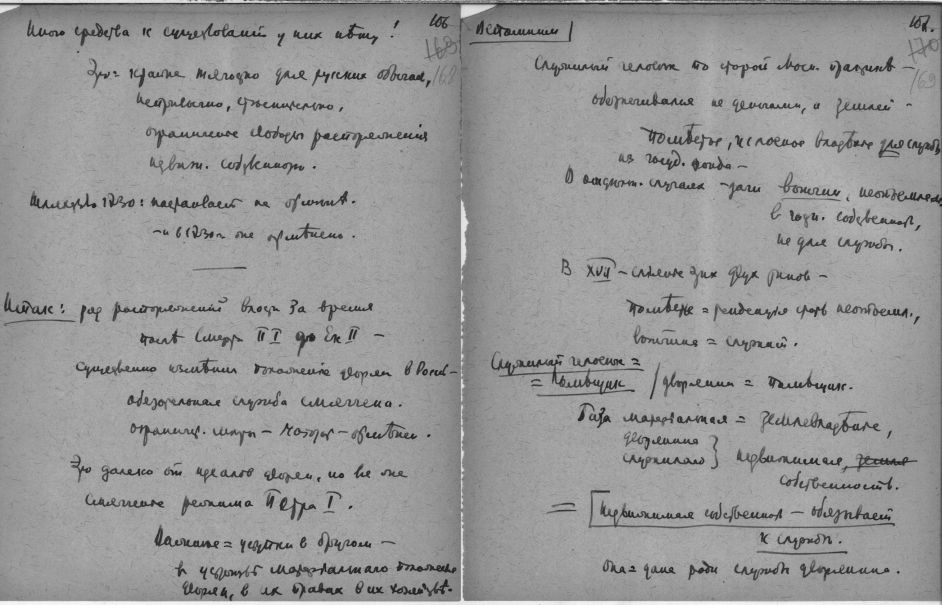 106
168
162
Иного средства к существованiй у них нѣту!
Это = крайне тягодно для русских обычаев,
непривычно, стѣснительно,
ограничение свободы распоряжения
недвиж. собственост.
Шляхетство 1730: настаивает на отмѣнѣ.
– и в 1730 г. оно отмѣнено.
Итак: ряд распоряженiй власти за время
послѣ смерти П I до Ек II –
существенно измѣнили положенiе дворян в Россiи –
обязательная служба смягчена.
огранич. – отмѣнен.
Это далеко от идеала дворян, но все же
смягчение режима Петра I.
= уступки в другом –
в матерiальнаго положенiя
дворян, в их правах в их хозяйствѣ.
107.
170
169
Вспомним
Служилый человек по старой Моск. традицiи –
обезпечивался не деньгами, а землей –
помѣстье, условное владѣнiе для службы
из госуд. фонда –
В отдѣльн. случаях – дачи вотчин, неотъемлем.
в собственност,
не для службы.
В XVII – слiянiе этих двух типов –
помѣстье = тенденцiя стать неотъемл.,
вотчина = служит.
Служилый человек =
= помѣщик / дворянин = помѣщик.
База матерiальная = землевладѣнiе,
дворянина
служилаго } недвижимая, земля
собственность.
= Недвижимая собственност – обязывает
к службѣ.
Она = дана ради службы дворянина.